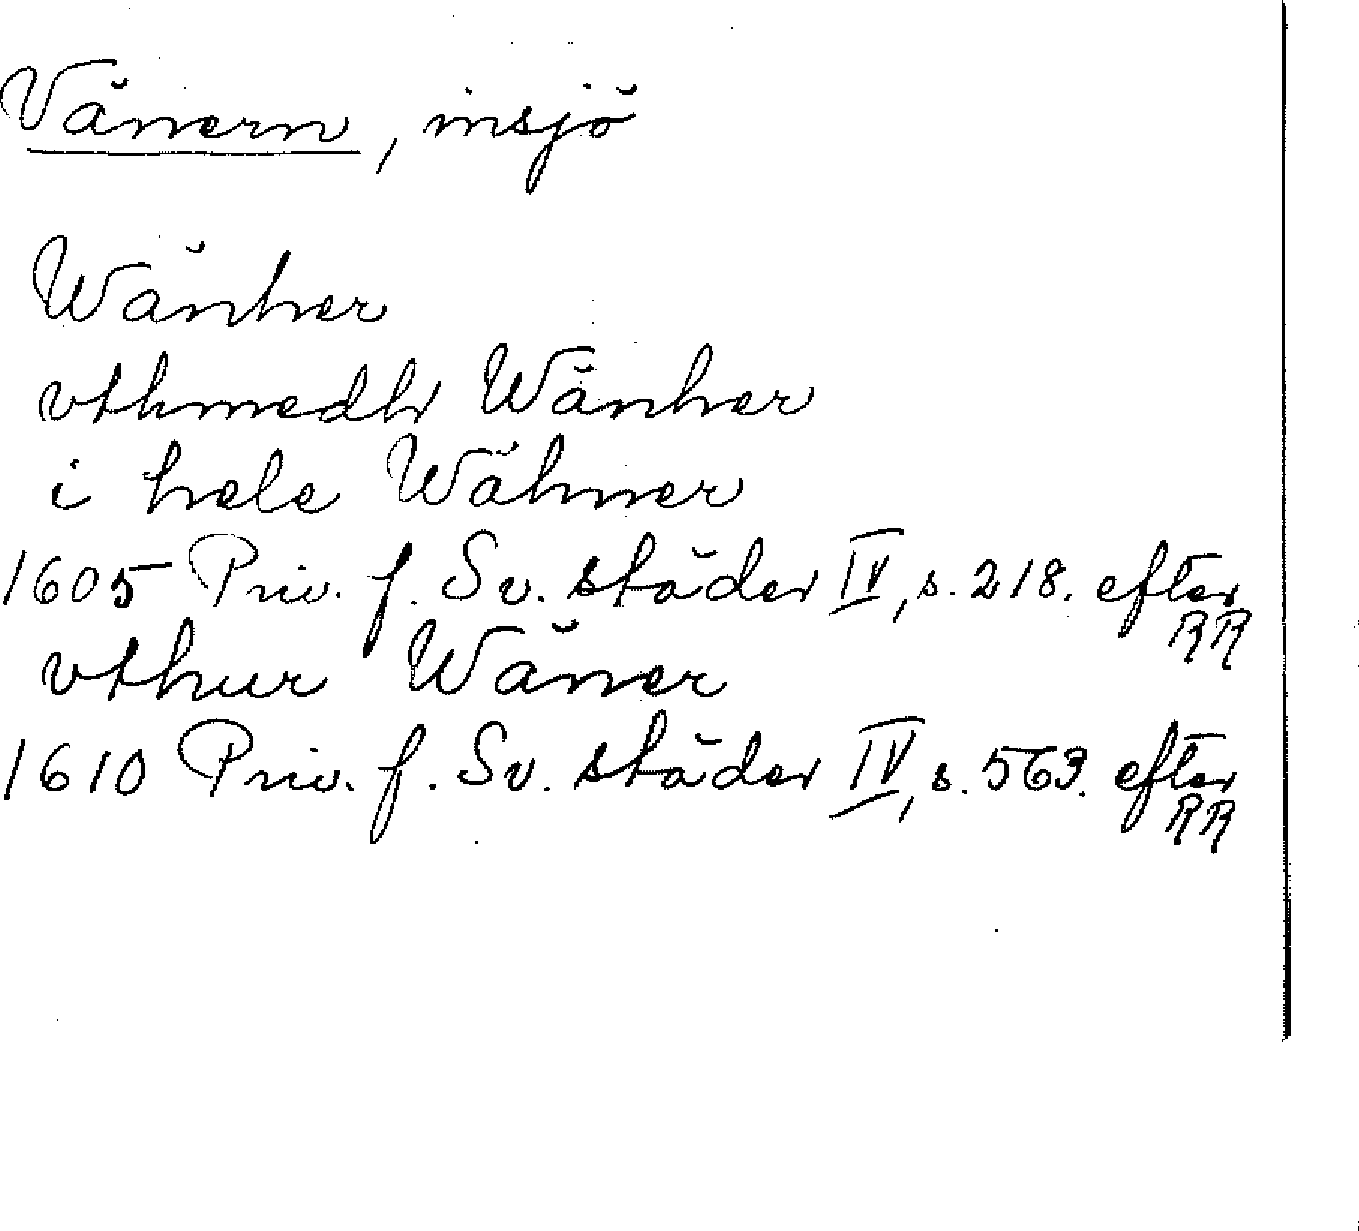 Vänern, insjö
Wänher
vthmedh Wänher
i hele Wähner
1605 Priv. f. Sv. städer IV, s. 218. efter RR
vthur Wäner
1610 Priv. f. Sv. städer IV, s. 563. efter RR